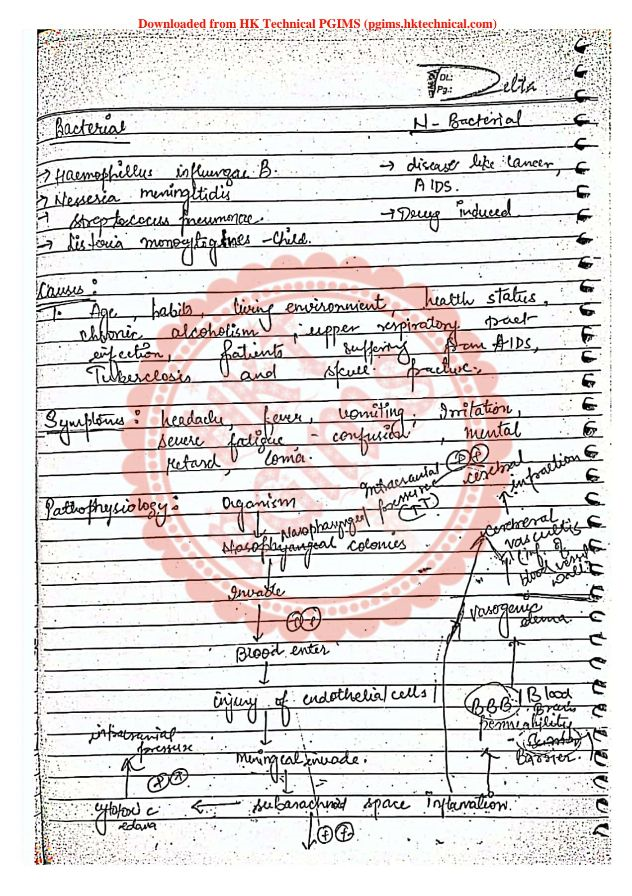 Downloaded from HK Technical PGIMS (pgims.hktechnical.com)
Dt.:
Pg.:
Delta
Bacterial
N - Bacterial
→ Haemophillus influengae B.
→ disease like Cancer, AIDS.
→ Nesseria meningitidis
→ Streptococus pneumonae.
→ Drug induced
→ listoria monocytogines - Child.
Causes :
1. Age, habits, living environment, health status,
chronic alcoholism, upper respiratory tract
infection, patients suffering from AIDS,
Tuberclosis and skull fracture.
Symptoms : headache, fever, vomiting, Irritation,
severe fatigue - confusion, mental
retard, Coma.
Pathophysiology : Organism
Nasopharyngeal colonies
Invade
Blood enter
injury of endothelial cells
Miningeal invade.
subarachnoid space inflamation.
cytotoxic edava
intracranial pressure
BBB
Blood Brain Barrier
permeability
vasogenic edema
Cerebreral vascultis
(inf. of blood vessel walls)
cerebral infraction
Intracranial pressure (↑↑)